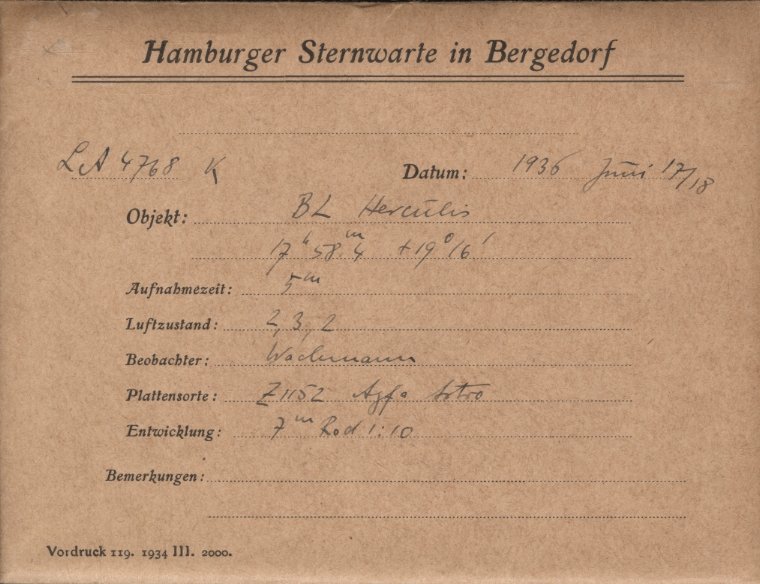 Hamburger Sternwarte in Bergedorf
LA 4768 K Datum: 1936 Juni 17/18
Objekt: BL Herculis
17ʰ 58ᵐ.4 +19° 16'
Aufnahmezeit: 5ᵐ
Luftzustand: 2, 3, 2
Beobachter: Wachmann
Plattensorte: Z1152 Agfa Astro
Entwicklung: 7ᵐ Rod 1:10
Bemerkungen:
Vordruck 119. 1934 III. 2000.